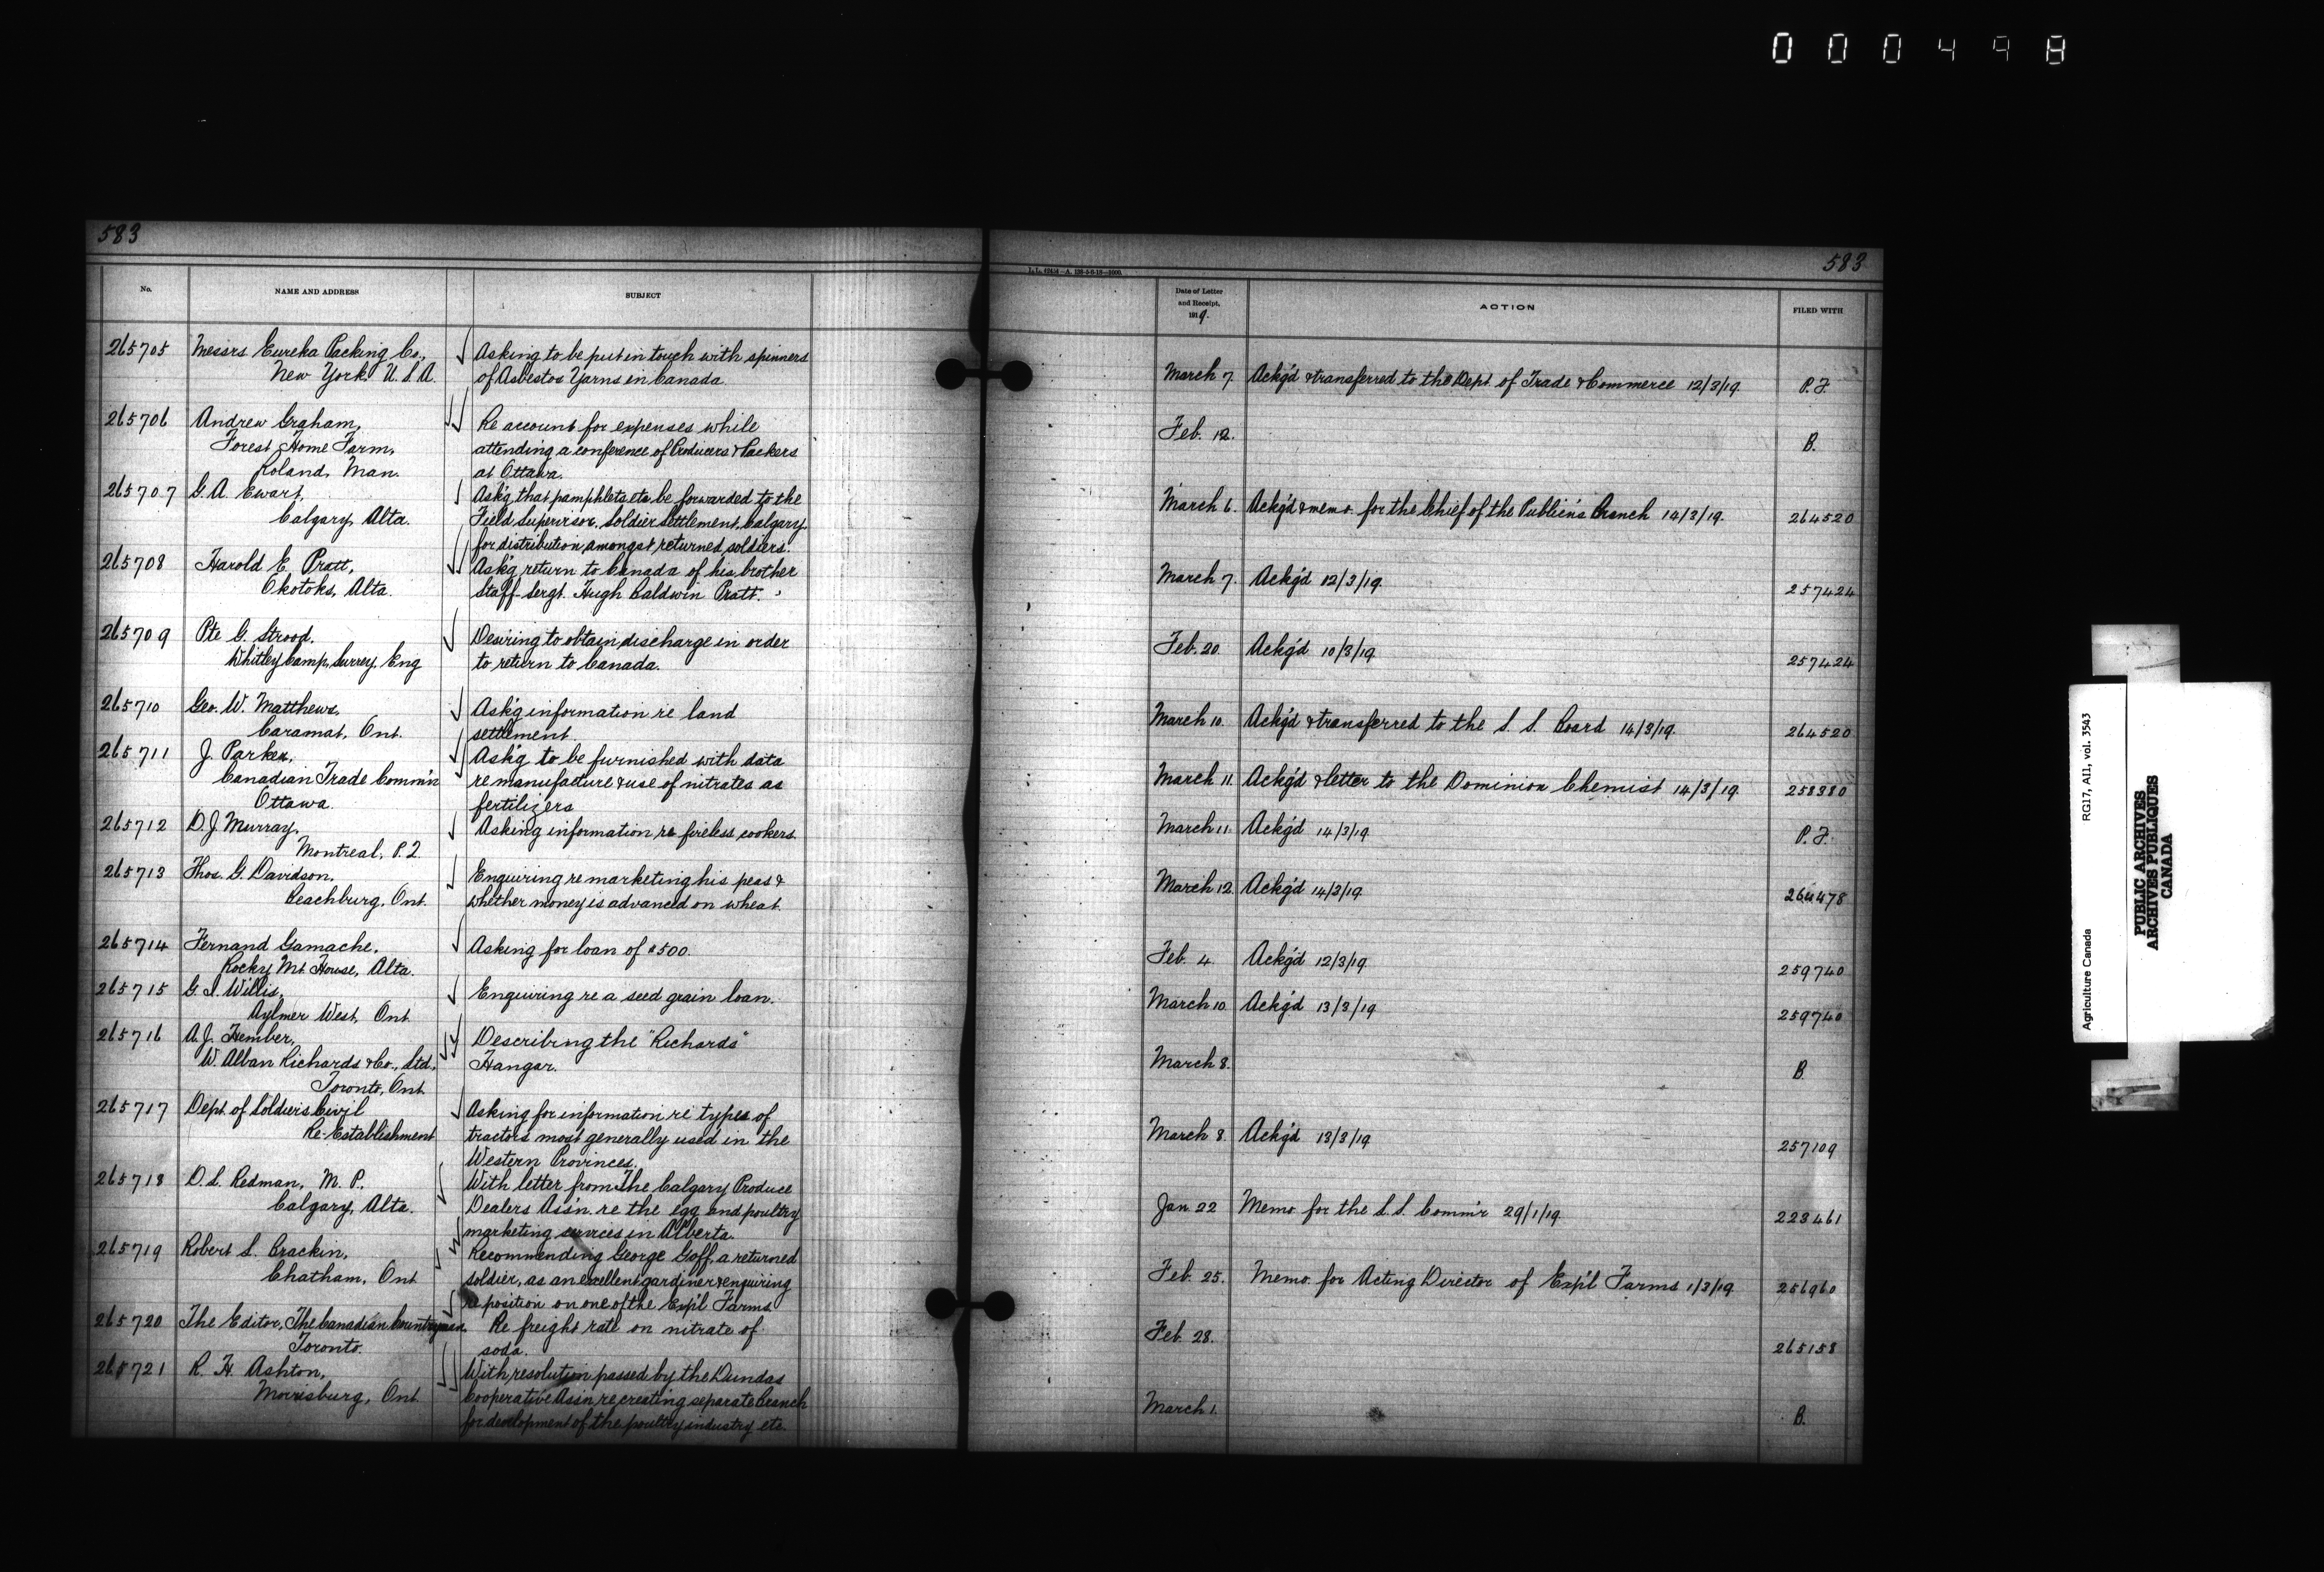 000498
583
No.
NAME AND ADDRESS
SUBJECT
265705
Messrs Eureka Packing Co.,
New York. U.S.A.
Asking to be put in touch with spinners
of Asbestos Yarns in Canada.
265706
Andrew Graham,
Forest Home Farm,
Roland, Man.
Re account for expenses while
attending a conference of Producers & Packers
at Ottawa.
265707
G. A. Ewart,
Calgary, Alta.
Ask'g that pamphlets etc be forwarded to the
Field Supervisor, Soldier Settlement, Calgary
for distribution amongst returned soldiers.
265708
Harold E. Pratt,
Okotoks, Alta.
Ask'g return to Canada of his brother
Staff-Sergt. Hugh Baldwin Pratt.
265709
Pte G. Strood.
Whitley Camp, Surrey, Eng
Desiring to obtain discharge in order
to return to Canada.
265710
Geo. W. Matthews,
Caramat, Ont.
Ask'g information re land
settlement.
265711
J. Parker,
Canadian Trade Comm'n
Ottawa.
Ask'g to be furnished with data
re manufacture & use of nitrates as
fertilizers
265712
D. J. Murray,
Montreal, P.Q.
Asking information re fireless cookers.
265713
Thos. G. Davidson,
Beachburg, Ont.
Enquiring re marketing his peas &
whether money is advanced on wheat.
265714
Fernand Gamache,
Rocky Mt. House, Alta.
Asking for loan of $500.
265715
G. I. Willis,
Aylmer West, Ont
Enquiring re a seed grain loan.
265716
A. J. Hember,
W. Alban Richards & Co., Ltd.,
Toronto, Ont.
Describing the "Richards"
Hangar.
265717
Dept. of Soldiers Civil
Re-Establishment
Asking for information re types of
tractors most generally used in the
Western Provinces.
265718
D. L. Redman, M. P.
Calgary, Alta.
With letter from The Calgary Produce
Dealers Ass'n. re the egg and poultry
marketing services in Alberta.
265719
Robert L. Brackin,
Chatham, Ont
Recommending George Goff, a returned
soldier, as an excellent gardiner & enquiring
re position on one of the Exp'l Farms.
265720
The Editor, The Canadian Countryman.
Toronto.
Re freight rate on nitrate of
soda.
265721
R. H. Ashton,
Morrisburg, Ont
With resolution passed by the Dundas
Cooperative Ass'n. re creating separate Branch
for development of the poultry industry etc.
583
Date of Letter
and Receipt,
1919.
ACTION
FILED WITH
March 7. Ackg'd & transferred to the Dept. of Trade & Commerce 12/3/19. P.F.
Feb. 12. B.
March 6. Ackg'd & memo. for the Chief of the Public'ns Branch 14/3/19. 264520
March 7. Ackg'd 12/3/19. 257424
Feb. 20. Ackg'd 10/3/19 257424
March 10. Ackg'd & transferred to the S. S. Board 14/3/19. 264520
March 11. Ackg'd & letter to the Dominion Chemist 14/3/19. 258380
March 11. Ackg'd 14/3/19 P.F.
March 12. Ackg'd 14/3/19 264478
Feb. 4. Ackg'd 12/3/19 259740
March 10. Ackg'd 13/3/19 259740
March 8. B.
March 8. Ackg'd 13/3/19 257109
Jan. 22 Memo for the L.S. Comm'r 29/1/19 223461
Feb. 25. Memo. for Acting Director of Exp'l Farms 1/3/19. 256960
Feb. 28. 265158
March 1. B.
Agriculture Canada RG17, AI1, vol. 3543
PUBLIC ARCHIVES
ARCHIVES PUBLIQUES
CANADA